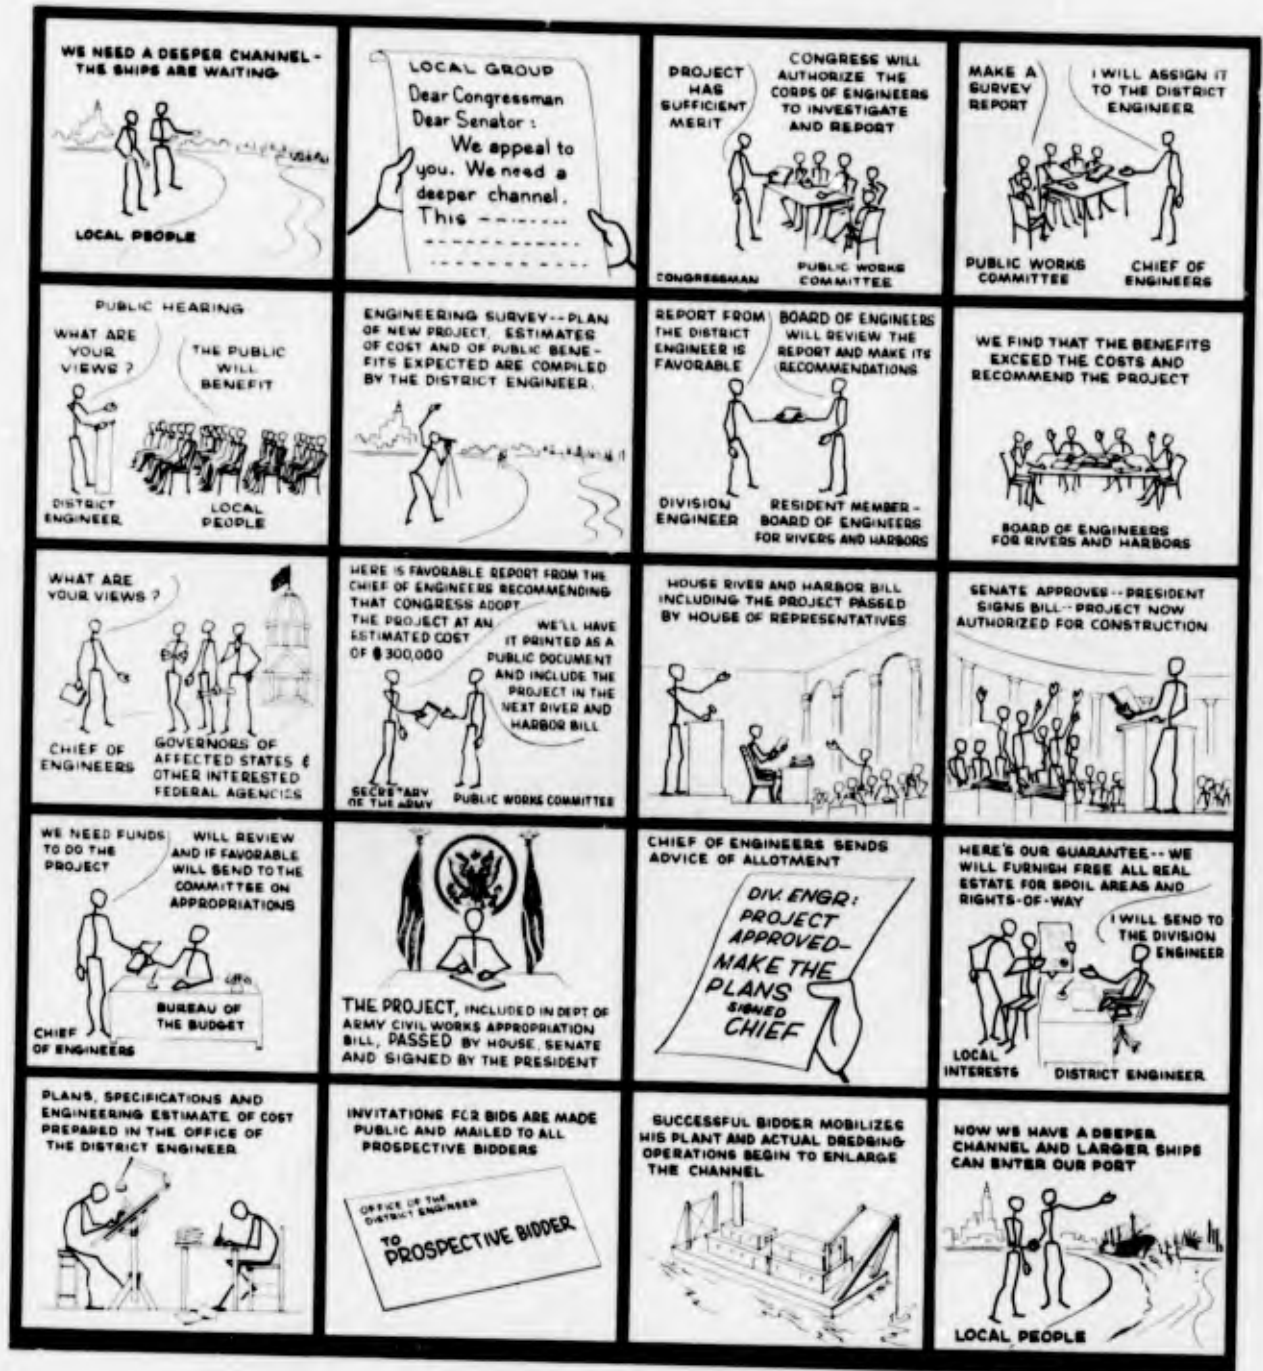 WE NEED A DEEPER CHANNEL -
THE SHIPS ARE WAITING
LOCAL PEOPLE
LOCAL GROUP
Dear Congressman
Dear Senator:
We appeal to
you. We need a
deeper channel.
This
PROJECT
HAS
SUFFICIENT
MERIT
CONGRESS WILL
AUTHORIZE THE
CORPS OF ENGINEERS
TO INVESTIGATE
AND REPORT
CONGRESSMAN
PUBLIC WORKS
COMMITTEE
MAKE A
SURVEY
REPORT
I WILL ASSIGN IT
TO THE DISTRICT
ENGINEER
PUBLIC WORKS
COMMITTEE
CHIEF OF
ENGINEERS
PUBLIC HEARING
WHAT ARE
YOUR
VIEWS?
THE PUBLIC
WILL
BENEFIT
DISTRICT
ENGINEER
LOCAL
PEOPLE
ENGINEERING SURVEY--PLAN
OF NEW PROJECT, ESTIMATES
OF COST AND OF PUBLIC BENE-
FITS EXPECTED ARE COMPILED
BY THE DISTRICT ENGINEER.
REPORT FROM
THE DISTRICT
ENGINEER IS
FAVORABLE
BOARD OF ENGINEERS
WILL REVIEW THE
REPORT AND MAKE ITS
RECOMMENDATIONS
DIVISION
ENGINEER
RESIDENT MEMBER-
BOARD OF ENGINEERS
FOR RIVERS AND HARBORS
WE FIND THAT THE BENEFITS
EXCEED THE COSTS AND
RECOMMEND THE PROJECT
BOARD OF ENGINEERS
FOR RIVERS AND HARBORS
WHAT ARE
YOUR VIEWS?
CHIEF OF
ENGINEERS
GOVERNORS OF
AFFECTED STATES &
OTHER INTERESTED
FEDERAL AGENCIES
HERE IS FAVORABLE REPORT FROM THE
CHIEF OF ENGINEERS RECOMMENDING
THAT CONGRESS ADOPT
THE PROJECT AT AN
ESTIMATED COST
OF $300,000
WE'LL HAVE
IT PRINTED AS A
PUBLIC DOCUMENT
AND INCLUDE THE
PROJECT IN THE
NEXT RIVER AND
HARBOR BILL
SECRETARY
OF THE ARMY
PUBLIC WORKS COMMITTEE
HOUSE RIVER AND HARBOR BILL
INCLUDING THE PROJECT PASSED
BY HOUSE OF REPRESENTATIVES
SENATE APPROVES--PRESIDENT
SIGNS BILL--PROJECT NOW
AUTHORIZED FOR CONSTRUCTION
WE NEED FUNDS
TO DO THE
PROJECT
WILL REVIEW
AND IF FAVORABLE
WILL SEND TO THE
COMMITTEE ON
APPROPRIATIONS
CHIEF
OF ENGINEERS
BUREAU OF
THE BUDGET
THE PROJECT, INCLUDED IN DEPT OF
ARMY CIVIL WORKS APPROPRIATION
BILL, PASSED BY HOUSE, SENATE
AND SIGNED BY THE PRESIDENT
CHIEF OF ENGINEERS SENDS
ADVICE OF ALLOTMENT
DIV. ENGR:
PROJECT
APPROVED-
MAKE THE
PLANS
SIGNED
CHIEF
HERE'S OUR GUARANTEE--WE
WILL FURNISH FREE ALL REAL
ESTATE FOR SPOIL AREAS AND
RIGHTS-OF-WAY
I WILL SEND TO
THE DIVISION
ENGINEER
LOCAL
INTERESTS
DISTRICT ENGINEER
PLANS, SPECIFICATIONS AND
ENGINEERING ESTIMATE OF COST
PREPARED IN THE OFFICE OF
THE DISTRICT ENGINEER
INVITATIONS FOR BIDS ARE MADE
PUBLIC AND MAILED TO ALL
PROSPECTIVE BIDDERS
OFFICE OF THE
DISTRICT ENGINEER
TO
PROSPECTIVE BIDDER
SUCCESSFUL BIDDER MOBILIZES
HIS PLANT AND ACTUAL DREDGING
OPERATIONS BEGIN TO ENLARGE
THE CHANNEL
NOW WE HAVE A DEEPER
CHANNEL AND LARGER SHIPS
CAN ENTER OUR PORT
LOCAL PEOPLE